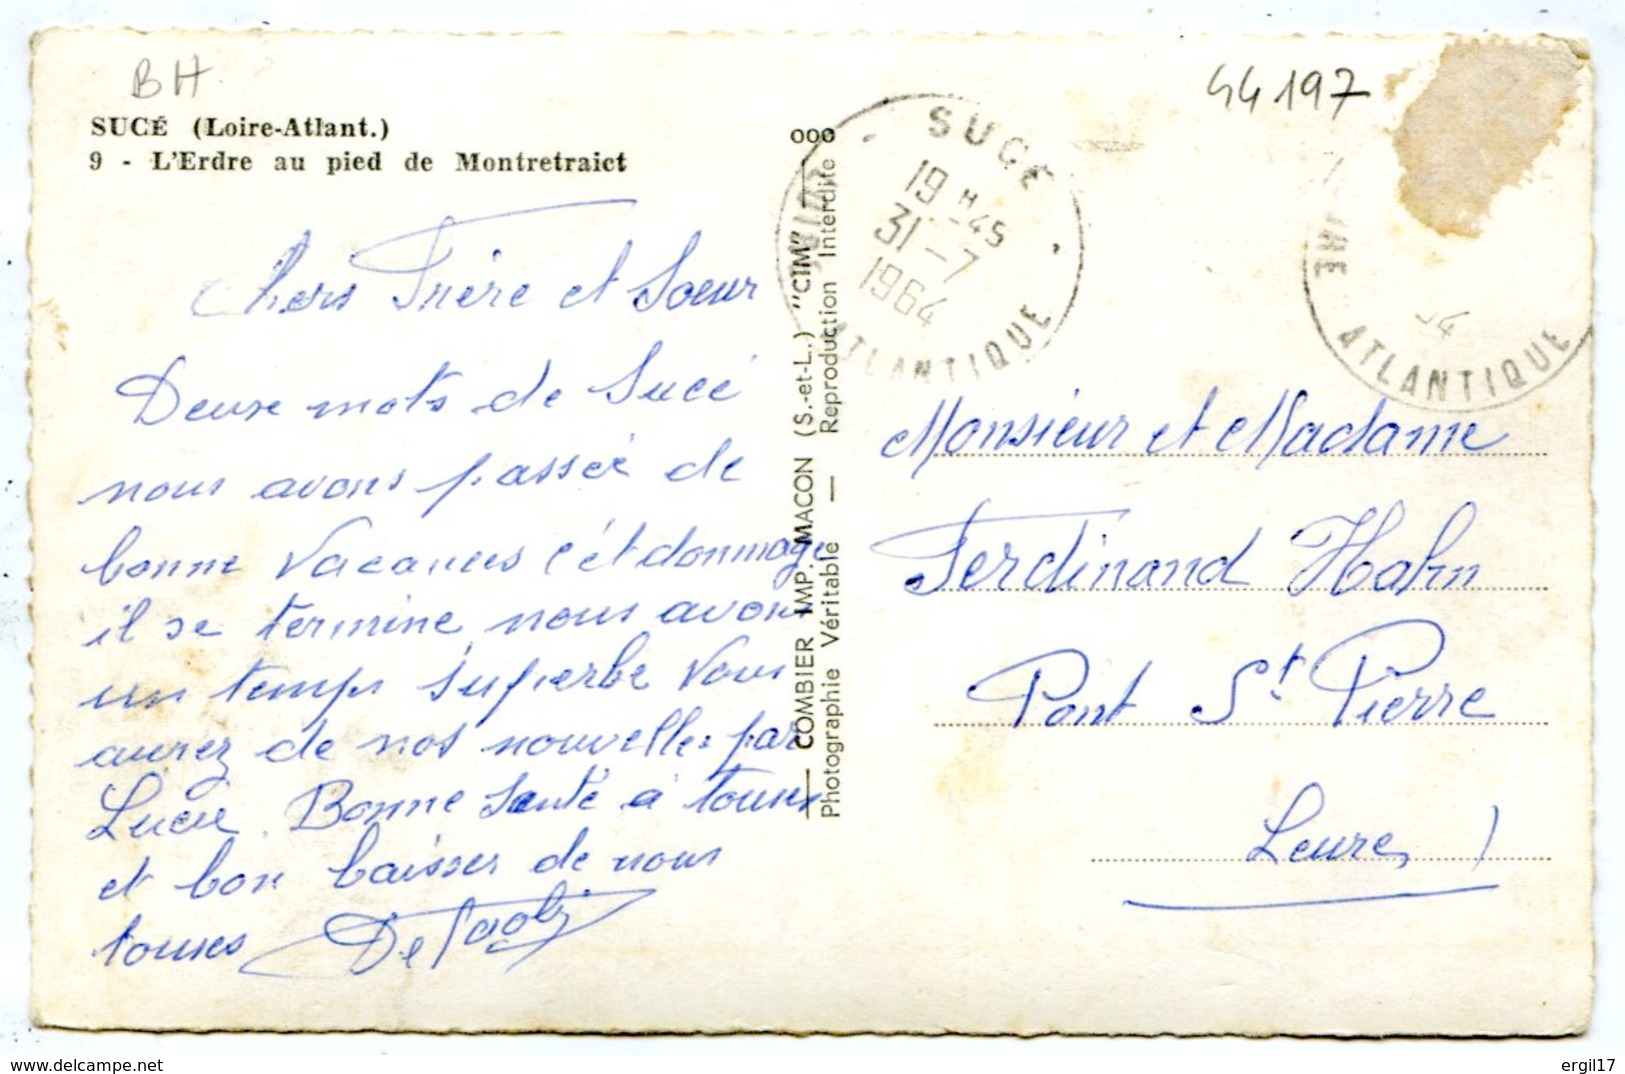 BH
SUCÉ (Loire-Atlant.)
9 - L'Erdre au pied de Montretraict
Chers Frère et Soeur
Deuxe mots de Sucé
nous avons passée de
bonne vacances c'ét dommage
il se termine, nous avons
un temps superbe vous
aurez de nos nouvelles par
Lucie. Bonne Santé a toues
et bon baisser de nous
toues
COMBIER IMP. MACON (S.-et-L.) "CIM"
Photographie Véritable — Reproduction Interdite
ooo
SUCÉ
19 H 45
31-7
1964
LOIRE ATLANTIQUE
44197
ATLANTIQUE
Monsieur et Madame
Ferdinand Hahn
Pont St Pierre
Leure,
ergil17